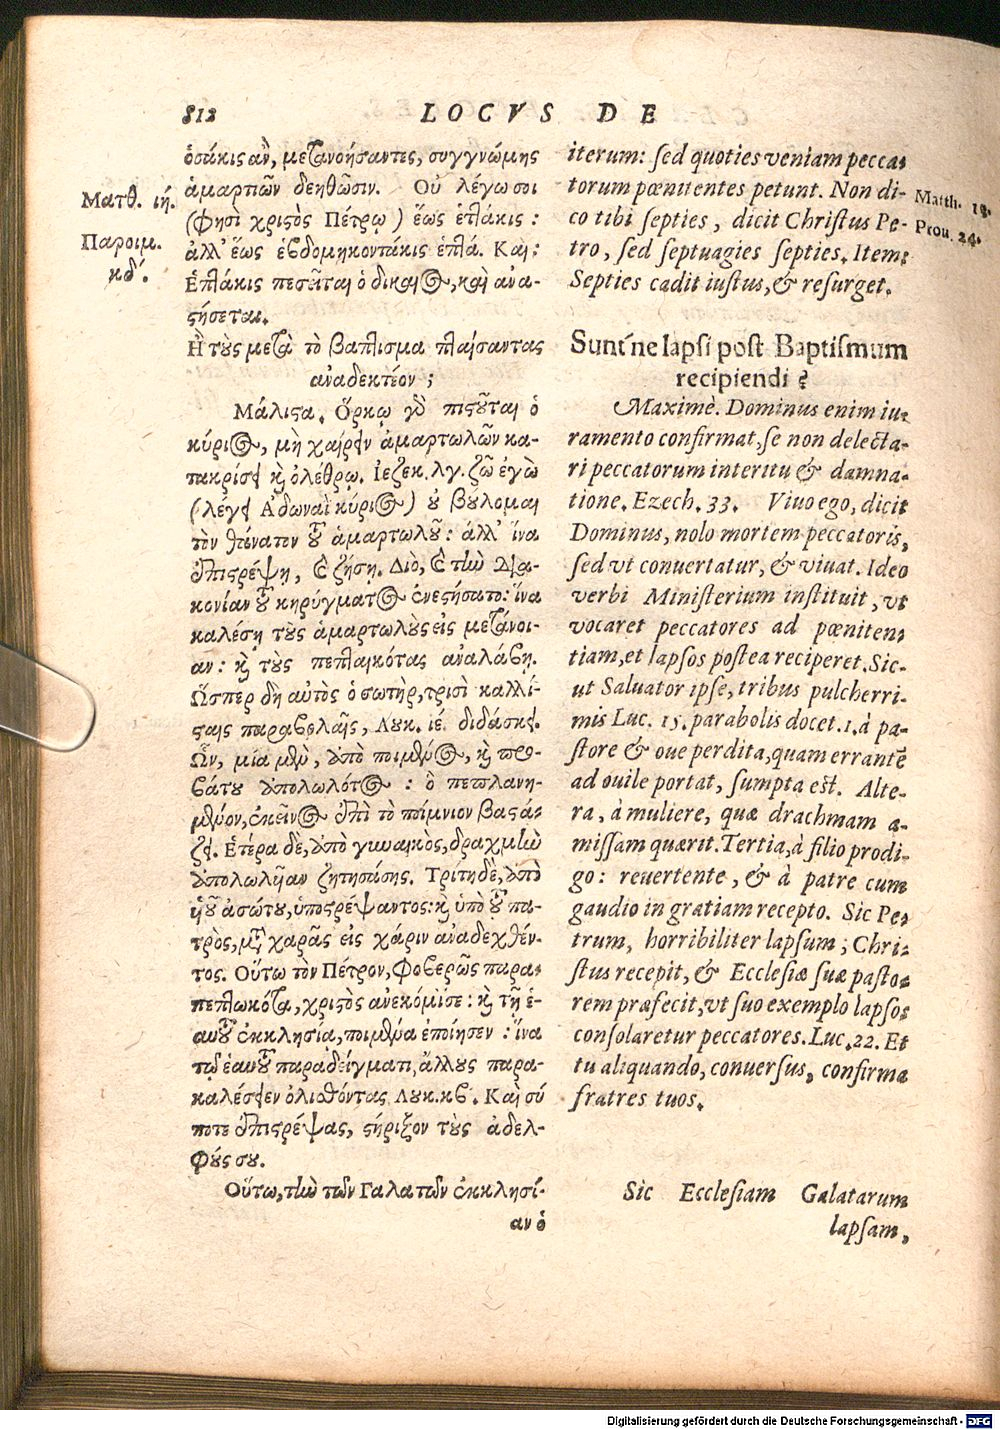 812 LOCVS DE
ὁσάκις ἂν, μετανοήσαντες, συγγνώμης
ἁμαρτιῶν δεηθῶσιν. Οὐ λέγω σοι
(φησὶ χριστὸς Πέτρῳ) ἕως ἑπτάκις:
ἀλλ' ἕως ἑβδομηκοντάκις ἑπτά. Καὶ:
Ἑπτάκις πεσεῖται ὁ δίκαιος, καὶ ἀνα-
στήσεται.
Ματθ. ιή.
Παροιμ.
κδ'.
Ἦ τοὺς μετὰ τὸ βάπτισμα πταίσαντας
ἀναδεκτέον;
Μάλιστα. Ὅρκῳ γὸ πιστοῦται ὁ
κύριος, μὴ χαίρειν ἁμαρτωλῶν κα-
τακρίσει καὶ ὀλέθρῳ. Ἰεζεκ. λγ. ζῶ ἐγὼ
(λέγει Ἀδωναῒ κύριος) οὐ βούλομαι
τὸν θάνατον τοῦ ἁμαρτωλοῦ: ἀλλ' ἵνα
ἐπιστρέψῃ, καὶ ζήσῃ. Διὸ, καὶ τὴν δια-
κονίαν τοῦ κηρύγματος ἐνεστήσατο: ἵνα
καλέσῃ τοὺς ἁμαρτωλοὺς εἰς μετάνοι-
αν: καὶ τοὺς πεπταικότας ἀναλάβῃ.
Ὥσπερ δὴ αὐτὸς ὁ σωτὴρ, τρισὶ καλλί-
σταις παραβολαῖς, Λουκ. ιέ. διδάσκει.
Ὧν, μία μὲν, ἀπὸ ποιμένος, καὶ προ-
βάτου ἀπολωλότος: ὃ πεπλανη-
μένον, ἐκεῖνος ἐπὶ τὸ ποίμνιον βαστά-
ζει. Ἑτέρα δὲ, ἀπὸ γυναικὸς, δραχμὴν
ἀπολωλῆαν ζητησάσης. Τρίτη δὲ, ἀπὸ
υἱοῦ ἀσώτου, ὑποστρέψαντος: καὶ ὑπὸ τοῦ πα-
τρὸς, μετὰ χαρᾶς εἰς χάριν ἀναδεχθέν-
τος. Οὕτω τὸν Πέτρον, φοβερῶς παρα-
πεπτωκότα, χριστὸς ἀνεκόμισε: καὶ τῇ ἑ-
αυτοῦ ἐκκλησίᾳ, ποιμένα ἐποίησεν: ἵνα
τῷ ἑαυτοῦ παραδείγματι, ἄλλους παρα-
καλέσειεν ὀλισθόντας. Λουκ. κβ'. Καὶ σύ
ποτε ἐπιστρέψας, στήριξον τοὺς ἀδελ-
φούς σου.
Οὕτω, τὴν τῶν Γαλατῶν ἐκκλησί-
αν ὁ
iterum: sed quoties veniam pecca-
torum pœnitentes petunt. Non di-
co tibi septies, dicit Christus Pe-
tro, sed septuagies septies. Item:
Septies cadit iustus, & resurget.
Matth. 18.
Prou. 24.
Sunt'ne lapsi post Baptismum
recipiendi?
Maximè. Dominus enim iu-
ramento confirmat, se non delecta-
ri peccatorum interitu & damna-
tione. Ezech. 33. Viuo ego, dicit
Dominus, nolo mortem peccatoris,
sed vt conuertatur, & viuat. Ideo
verbi Ministerium instituit, vt
vocaret peccatores ad pœniten-
tiam, et lapsos postea reciperet. Sic-
ut Saluator ipse, tribus pulcherri-
mis Luc. 15. parabolis docet. 1. à pa-
store & oue perdita, quam errantē
ad ouile portat, sumpta est. Alte-
ra, à muliere, quæ drachmam a-
missam quærit. Tertia, à filio prodi-
go: reuertente, & à patre cum
gaudio in gratiam recepto. Sic Pe-
trum, horribiliter lapsum; Chri-
stus recepit, & Ecclesiæ suæ pasto-
rem præfecit, vt suo exemplo lapsos
consolaretur peccatores. Luc. 22. Et
tu aliquando, conuersus, confirma
fratres tuos.
Sic Ecclesiam Galatarum
lapsam,
Digitalisierung gefördert durch die Deutsche Forschungsgemeinschaft - DFG